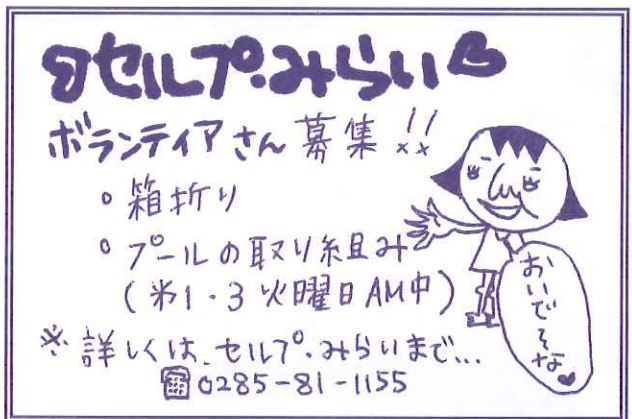 セルプ・みらい
ボランティアさん募集!!
◦箱折り
◦プールの取り組み
(第1・3火曜日AM中)
※詳しくは、セルプ・みらいまで...
☎0285-81-1155
おいでそな♥